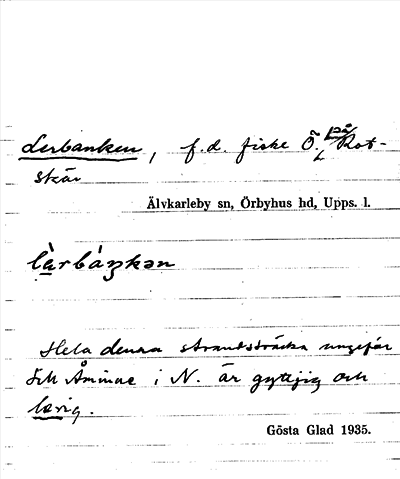 Lerbanken, f.d. fiske Ö. på Rot-
skär
Älvkarleby sn, Örbyhus hd, Upps. l.
làrbáŋkən
Hela denna strandsträcka ungefär
till Åminne i N. är gyttjig och
lerig.
Gösta Glad 1935.